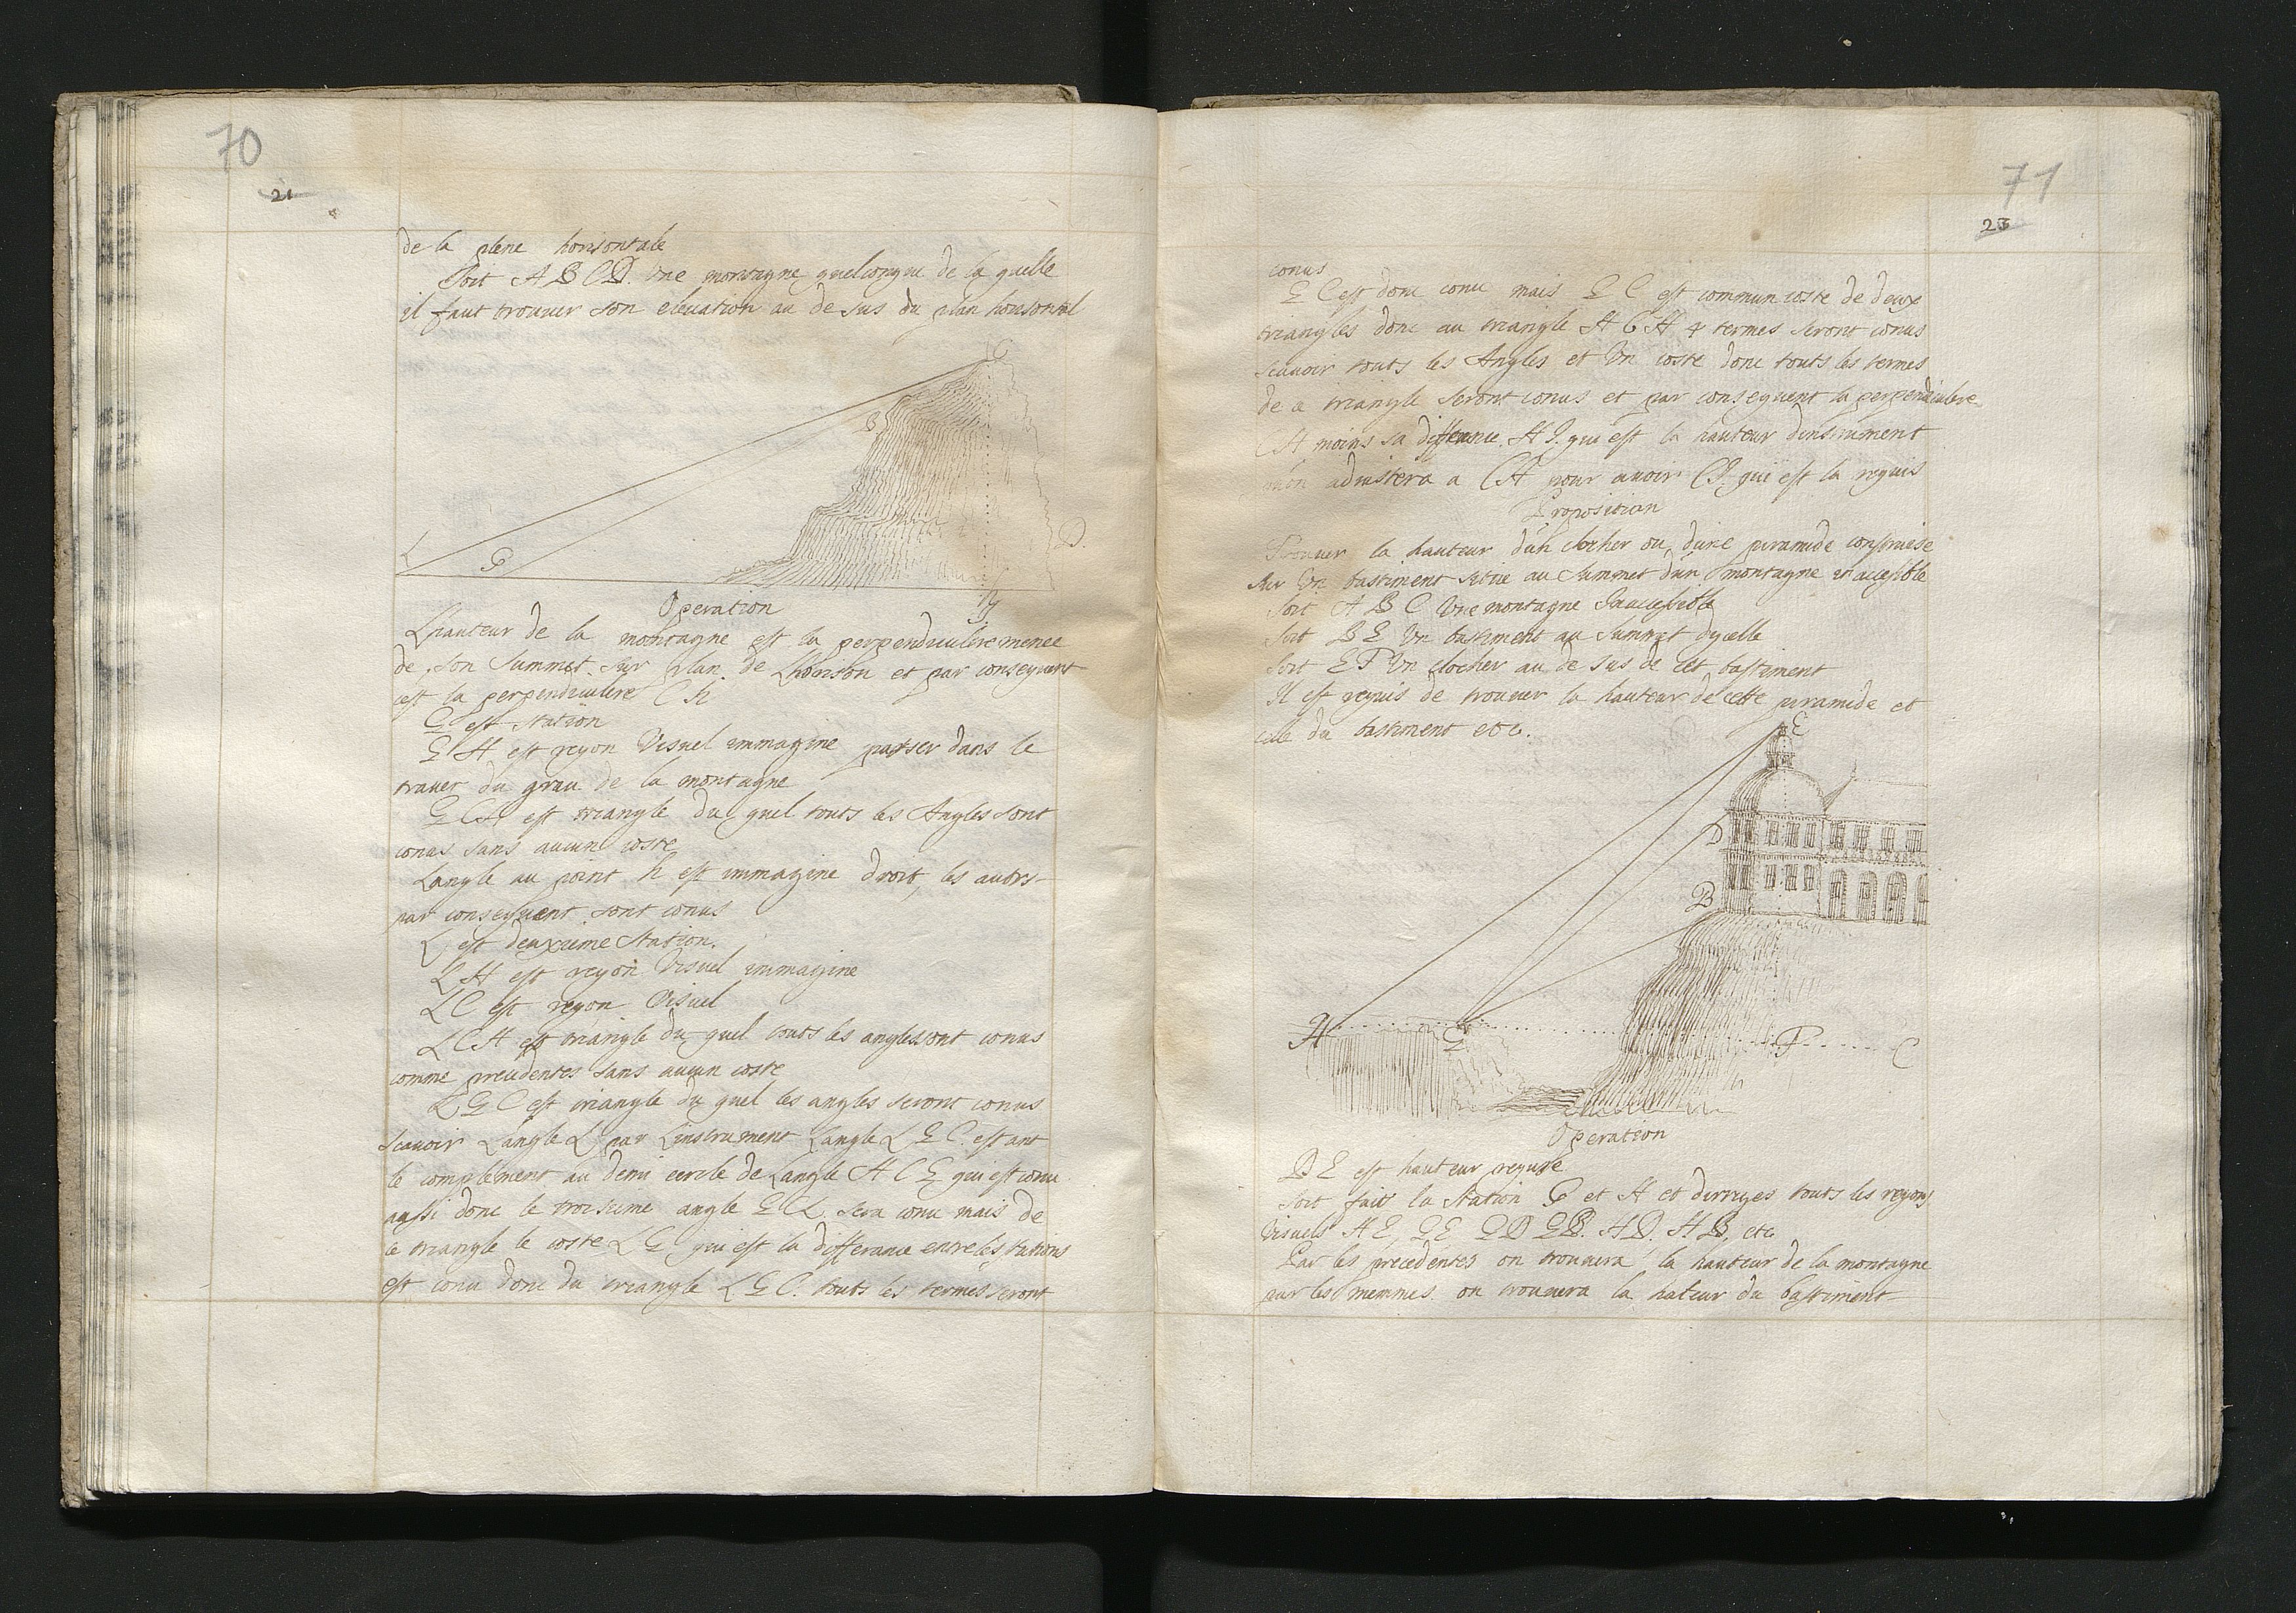 70
21
de la plene horisontale
Soit A B C D. Vne montagne quelconque de la quelle
il faut trouuer son eleuation au de sus du plan horisontal
C
B
L
G
D.
H
Operation
Lhauteur de la montagne est la perpendiculere menee
de son summet sur plan de Lhorison et par consequant
est la perpendiculere C h
G est station
G H est reyon Visuel immagine passer dans le
trauer du grau de la montagne
G C H est triangle du quel touts les Angles sont
conus sans aucun coste
Langle au point h est immagine droit, les autrs
par consequent sont conus
L est deuxieme station.
L H est reyon Visuel immagine
L C est reyon Visuel
L C H est triangle du quel touts les angles sont conus
comme precedentes sans aucun coste
L G C est triangle du quel les angles seront conus
scauoir Langle L par Linstrument Langle L G C. estant
le complement au demi cercle de Langle H C G qui est conu
aussi donc le troisieme angle G C L sera conu mais de
ce triangle le coste L G qui est la differance entre les stations
est conu donc du triangle L G C. touts les termes seront
71
23
conus
G C est donc conu mais G C est commun coste de deux
triangles donc au triangle H G H 4 termes seront conus
scauoir touts les Angles et Vn coste donc touts les termes
de ce triangle seront conus et par consequent la perpendiculere
C H moins sa differance H I. qui est la hauteur dinstrument
adiustera a C H pour auoir C I. qui est la requis
Proposition
Trouuer la hauteur dun clocher ou dune piramide construise
sur Vn bastiment situe au summet dun montagne inaccesible
Soit A B C Vne montagne Inaccesible
Soit B E Vn bastiment au summet dycelle
Soit E F Vn clocher au de sus de cet bastiment
Il est requis de trouuer la hauteur de cette piramide et
celle du bastiment etc.
E
D
B
H
G
F
C
Operation
D E est hauteur requise
Soit faits la station G et H et dirriges touts les reyons
Visuels H E, G E G D G B. H D. H B, etc
Par les precedentes on trouuera la hauteur de la montagne
par les memmes on trouuera la hateur du bastiment